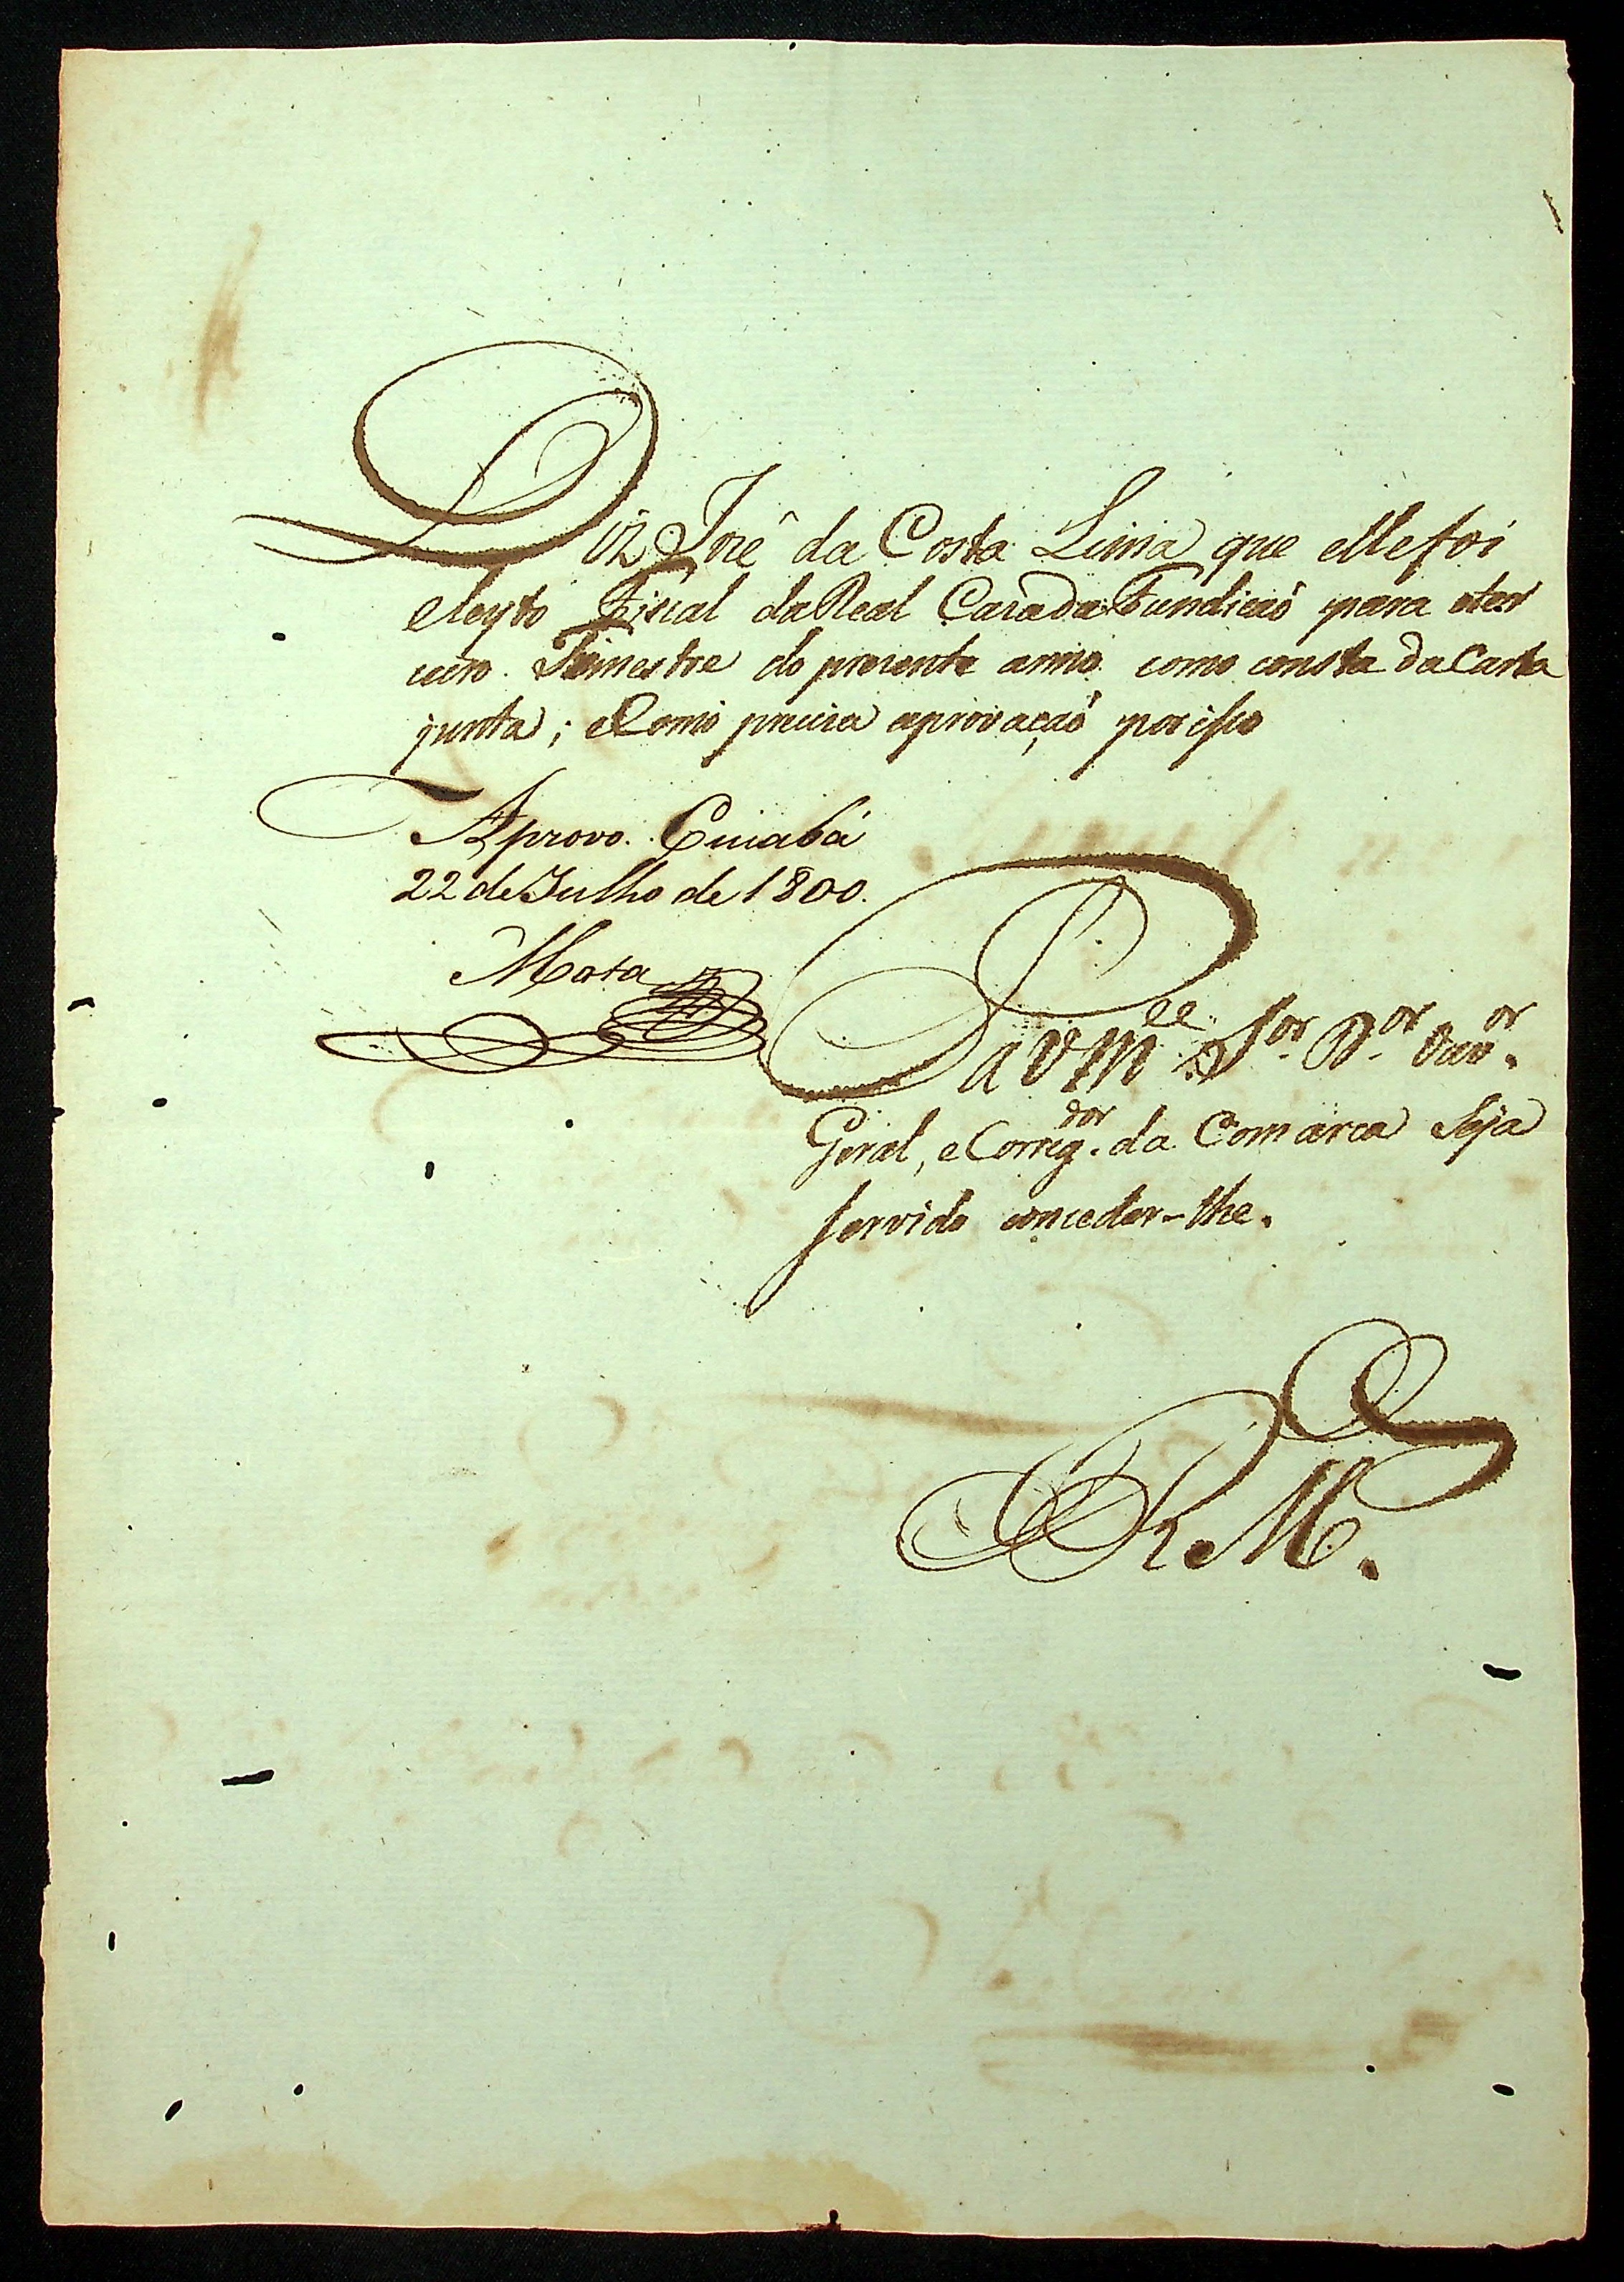 Diz Jozê da Costa Lima que elle foi
eleyto Fiscal da Real Casa da Fundicaõ para oter
ceiro. Trimestre do prezente anno como consta da Carta
junta; eComo preciza aprovaçaõ por isso
Aprovo. Cuiabá
22 de Julho de 1800.
Mata
P a VM.ce S.or D.or Ouv.or
Geral, e Correg.dor da Comarca Seja
servido conceder-lhe.
E R M.